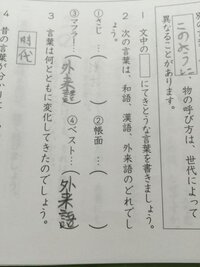 このように 物の呼び方は、世代によって
異なることがあります。
1 文中の□にてきとうな言葉を書きましょう。
2 次の言葉は、和語、漢語、外来語のどれでし
ょう。
①さじ…( )
②帳面…( )
③マフラー…(外来語)
④ベスト…(外来語)
3 言葉は何とともに変化してきたのでしょう。
時代